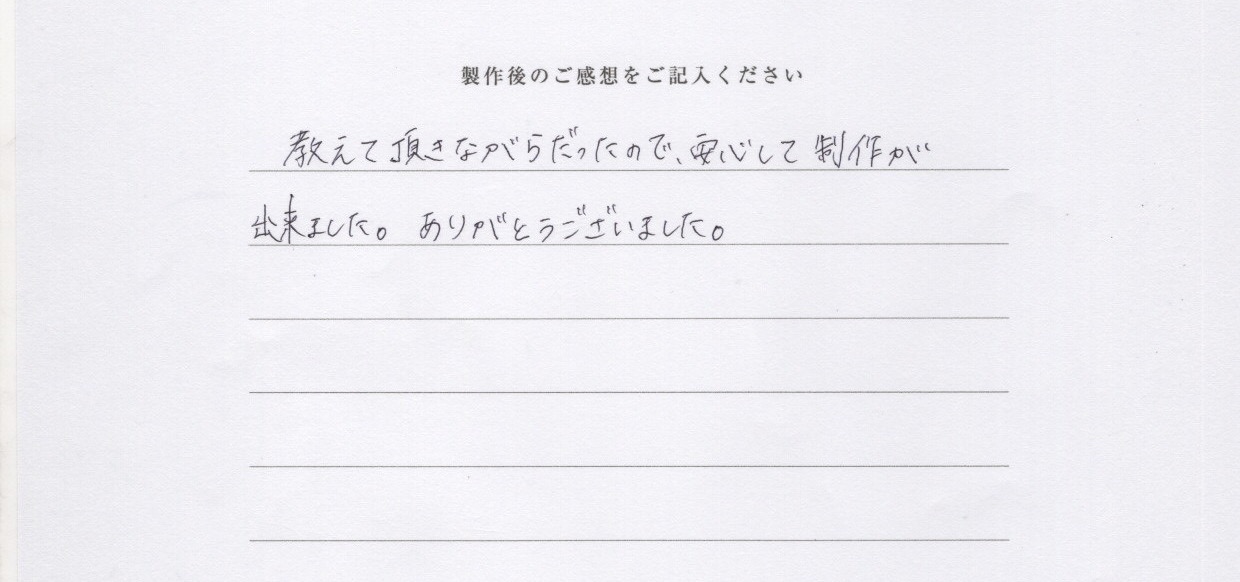 製作後のご感想をご記入ください
教えて頂きながらだったので、安心して制作が
出来ました。ありがとうございました。